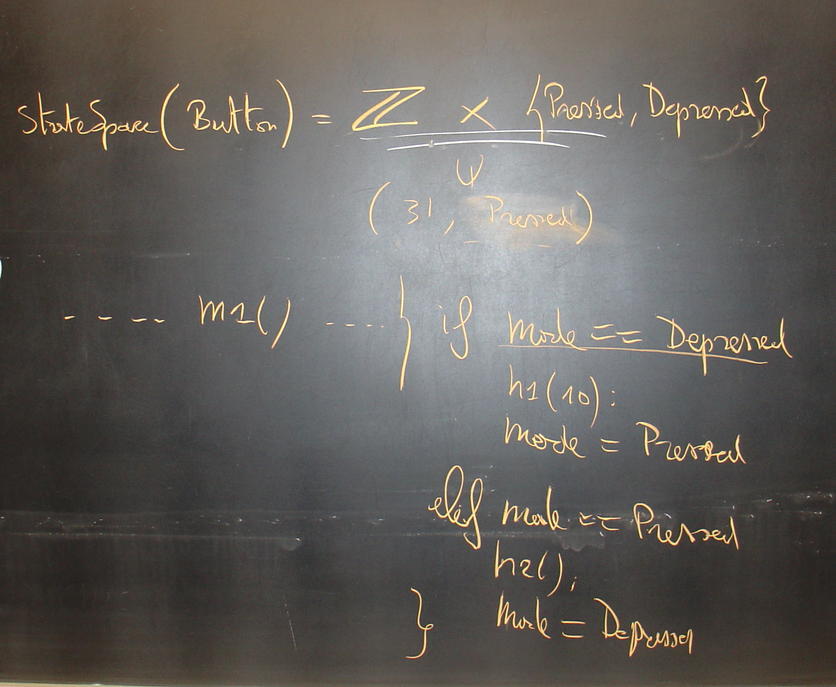 StateSpace(Button) = ℤ × {Pressed, Depressed}
ψ
(31, Pressed)
---- m1() ---- } if mode == Depressed
h1(10);
mode = Pressed
elif mode == Pressed
h2();
} mode = Depressed